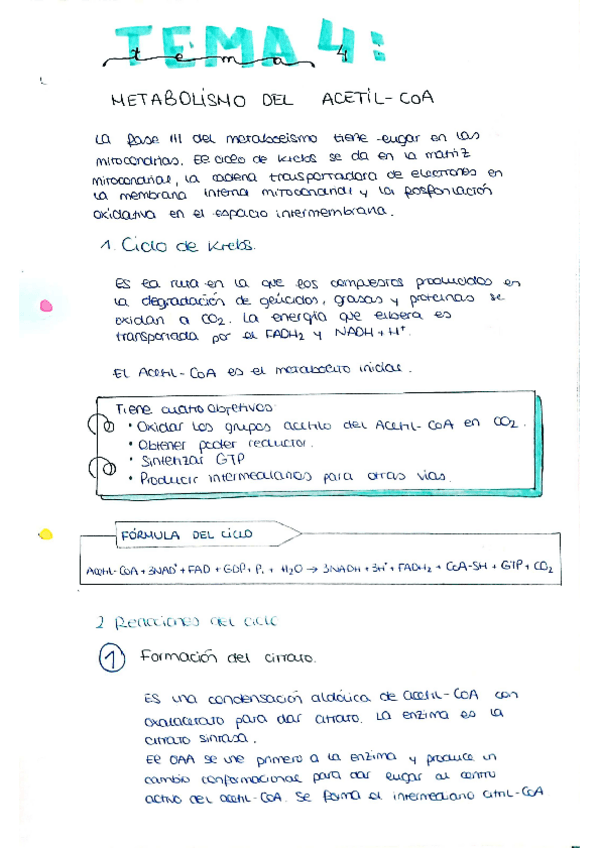 TEMA 4:
tema
METABOLISMO DEL ACETIL-COA
La fase III del metabolismo tiene lugar en las
mitocondrias. El ciclo de Krebs se da en la matriz
mitocondrial, la cadena transportadora de electrones en
la membrana interna mitocondrial y la fosforilación
oxidativa en el espacio intermembrana.
1. Ciclo de Krebs.
Es la ruta en la que los compuestos producidos en
la degradación de glúcidos, grasas y proteínas se
oxidan a CO2. La energía que libera es
transportada por el FADH2 y NADH + H+.
El Acetil-CoA es el metabolito inicial.
Tiene cuatro objetivos:
• Oxidar los grupos acetilo del Acetil-CoA en CO2.
• Obtener poder reductor.
• Sintetizar GTP
• Producir intermediarios para otras vías.
FÓRMULA DEL CICLO
Acetil-CoA + 3NAD+ + FAD + GDP + Pi + H2O → 3NADH + 3H+ + FADH2 + CoA-SH + GTP + CO2
2 Reacciones del ciclo
1 Formación del citrato.
Es una condensación aldólica de acetil-CoA con
oxalacetato para dar citrato. La enzima es la
citrato sintasa.
El OAA se une primero a la enzima y produce un
cambio conformacional para dar lugar al centro
activo del acetil-CoA. Se forma el intermediario citril-CoA